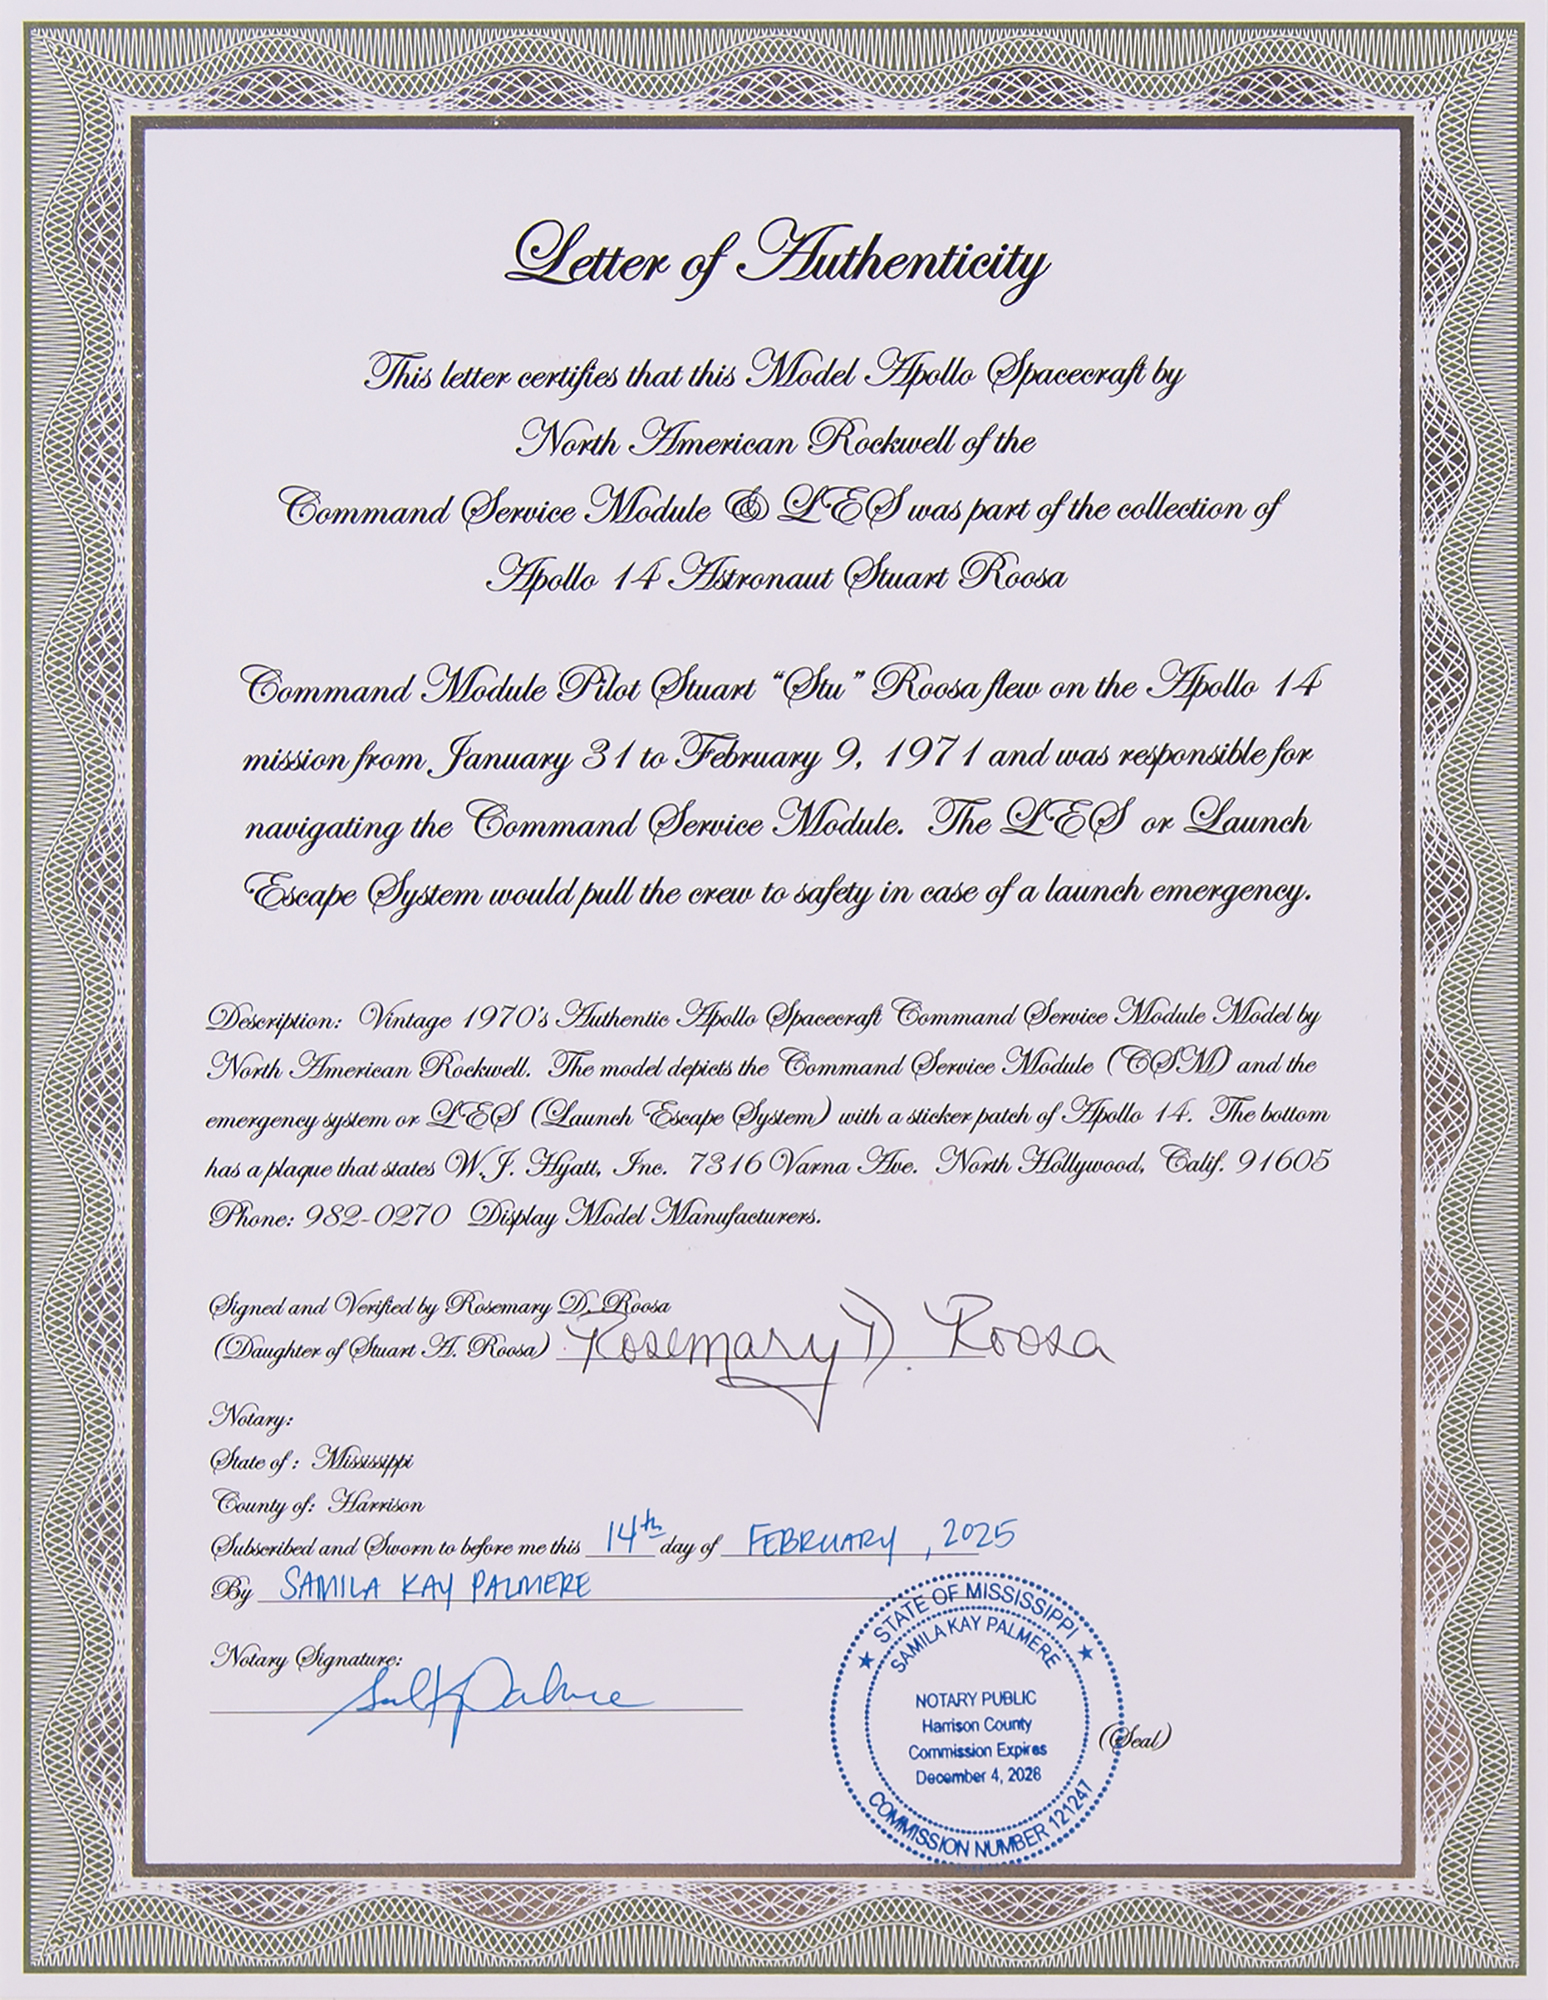 Letter of Authenticity
This letter certifies that this Model Apollo Spacecraft by
North American Rockwell of the
Command Service Module & LES was part of the collection of
Apollo 14 Astronaut Stuart Roosa
Command Module Pilot Stuart “Stu” Roosa flew on the Apollo 14
mission from January 31 to February 9, 1971 and was responsible for
navigating the Command Service Module. The LES or Launch
Escape System would pull the crew to safety in case of a launch emergency.
Description: Vintage 1970's Authentic Apollo Spacecraft Command Service Module Model by
North American Rockwell. The model depicts the Command Service Module (CSM) and the
emergency system or LES (Launch Escape System) with a sticker patch of Apollo 14. The bottom
has a plaque that states W.J. Hyatt, Inc. 7316 Varna Ave. North Hollywood, Calif. 91605
Phone: 982-0270 Display Model Manufacturers.
Signed and Verified by Rosemary D. Roosa
(Daughter of Stuart A. Roosa) Rosemary D. Roosa
Notary:
State of : Mississippi
County of: Harrison
Subscribed and Sworn to before me this 14th day of FEBRUARY, 2025
By SAMILA KAY PALMERE
Notary Signature:
STATE OF MISSISSIPPI
SAMILA KAY PALMERE
NOTARY PUBLIC
Harrison County
Commission Expires
December 4, 2028
COMMISSION NUMBER 121247
(Seal)